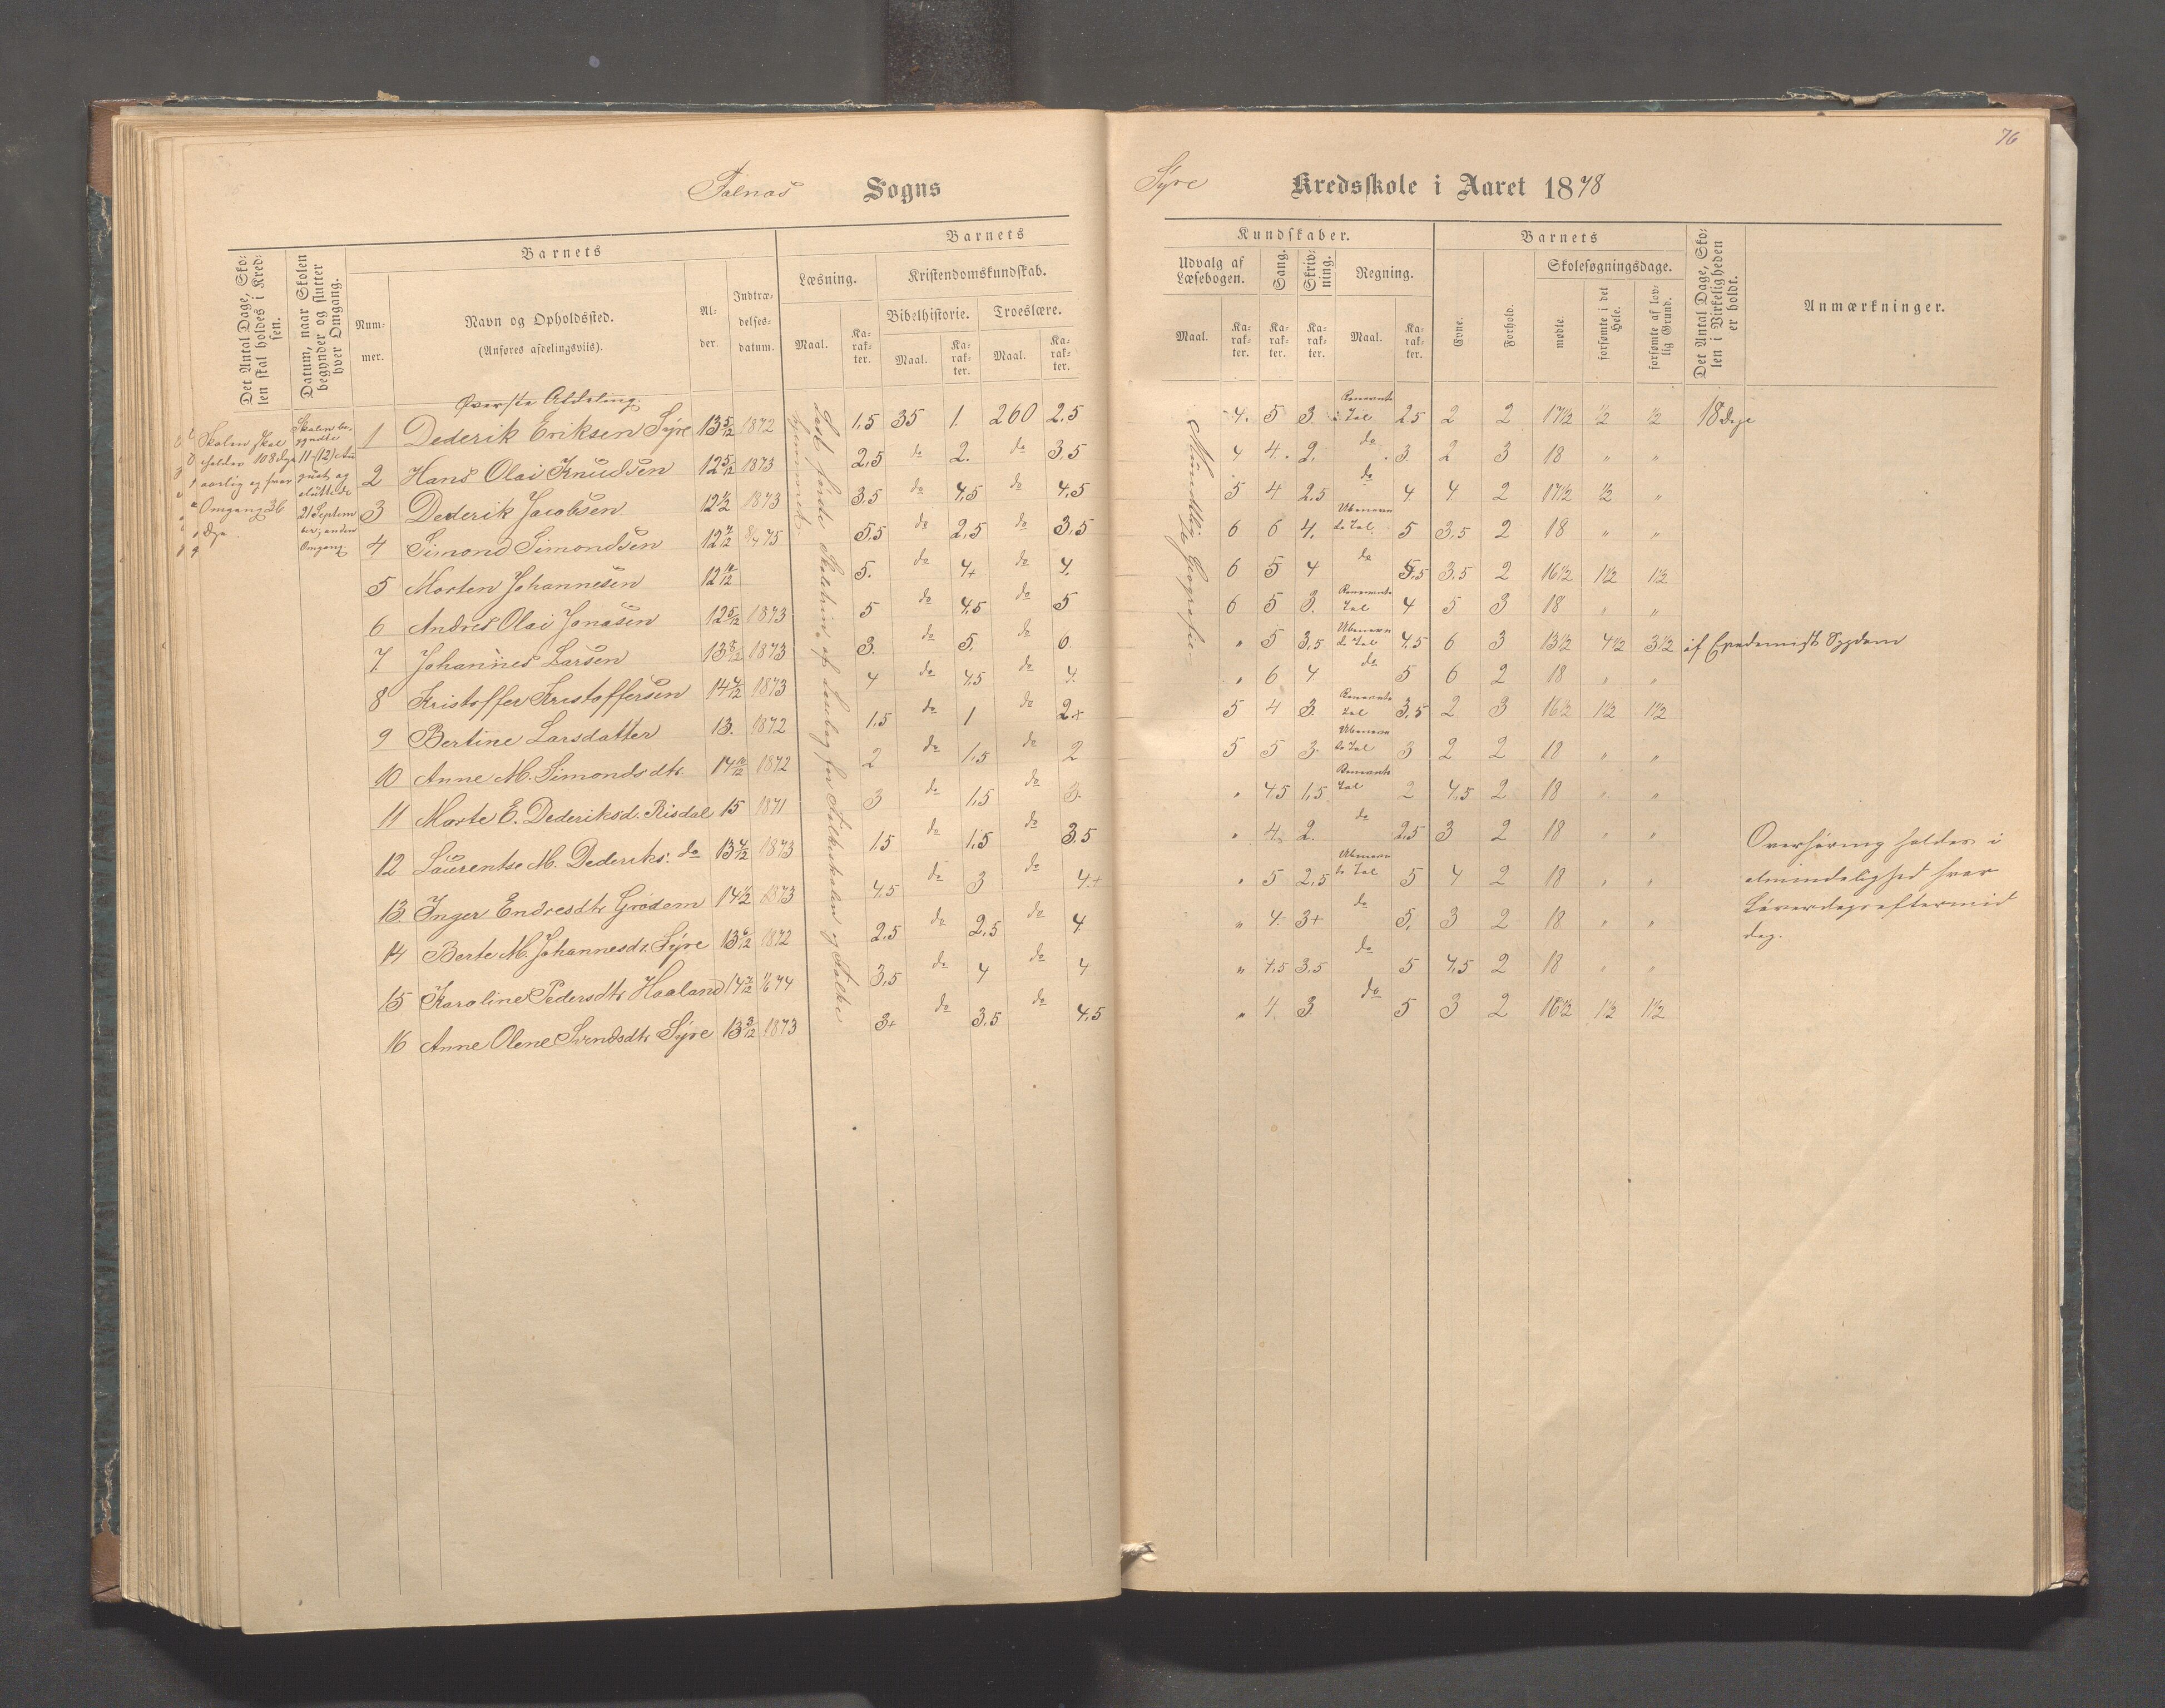 76
Falnæs Sogns
Syre Kredsskole i Aaret 1878
Det Antal Dage, Skolen skal holdes i Kredsen.
Datum, naar Skolen begynder og slutter hver Omgang.
Barnets
Nummer.
Navn og Opholdssted.
(Anføres afdelingsviis).
Alder.
Indtrædelsesdatum.
Barnets
Læsning.
Maal.
Karakter.
Kristendomskundskab.
Bibelhistorie.
Maal.
Karakter.
Troeslære.
Maal.
Karakter.
Kundskaber.
Udvalg af Læsebogen.
Maal.
Karakter.
Sang.
Karakter.
Skrivning.
Karakter.
Regning.
Maal.
Karakter.
Barnets
Evne.
Forhold.
Skolesøgningsdage.
mødte.
forsømte i det Hele.
forsømte af lovlig Grund.
Det Antal Dage, Skolen i Virkeligheden er holdt.
Anmærkninger.
Skolen skal
holdes 108 dage
aarlig og hver
Omgang 36
Dge.
Skolen be-
gyndte
11-(12) Au
gust og
sluttede
21 Septem
ber; anden
Omgang
Øverste Afdeling.
Mundtlig Geografie
1 Dederik Eriksen Syre 13 5/12 1872 1,5 35 1. 260 2,5 4. 5 3. Benævnte Tal 2,5 2 2 17 1/2 1/2 1/2 18 Dge
2 Hans Olai Knudsen 12 5/12 1873 2,5 do 2. do 3,5 4 4. 2. do 3. 2 3 18 " "
3 Dederik Jacobsen 12 1/2 1873 3,5 do 4,5 do 4,5 5 4 2,5 do 4 4 2 17 1/2 1/2 "
4 Simond Simondsen 12 7/12 75 5,5 do 2,5 do 3,5 6 6 4. Ubenævn de Tal 5 3,5 2 18 " "
5 Morten Johannesen 5. do 4+ do 4. 6 5 4 do 5,5 3,5 2 16 1/2 1 1/2 1 1/2
6 Andres Olai Jonasen 12 5/12 1873 5 do 4,5 do 5 6 5 3. Benævnte Tal 4 5 3 18 " "
7. Johannes Larsen 13 8/12 1873 3. do 5. do 6. " 5 3,5 Ubenævn de Tal 4,5 6 3 13 1/2 4 1/2 3 1/2 af Epedemisk Sygdom
8 Kristoffer Kristoffersen 14 7/12 1873 4 do 4,5 do 4. " 6 4 do 5 6 2 18 " "
9 Bertine Larsdatter 13. 1872 1,5 do 1 do 2+ 5 4 3. Benævnte Tal 3,5 2 3 16 1/2 1 1/2 1 1/2
10 Anne M. Simondsdtr. 1872 2 do 1,5 do 2 5 5 3. Ubenævn de Tal 3 2 2 18 " "
11 Marte E. Dederiksd. Risdal 15 1871 3 do 1,5 do 3. " 4,5 1,5 Benævnte Tal 2 4,5 2 18 " "
12 Laurentse M. Dederiks. do 13 7/12 1873 1,5 do 1,5 do 3,5 " 4. 2. do 2,5 3 2 18 " "
13. Inger Endresdtr Grødem 14 1/2 1873 4,5 do 3 do 4+ " 5 2,5 Ubenævn de Tal 5 4 2 18 " "
14 Berte M. Johannesdtr. Syre 13 6/12 1872 2,5 do 2,5 do 4 " 4. 3+ do 5. 3 2 18 " "
15 Karoline Pedersdtr Haaland 14 7/12 74 3,5 do 4 do 4 " 4,5 3,5 do 5 4,5 2 18 " "
16 Anne Olene Svendsdtr. Syre 13 3/12 1873 3+ do 3,5 do 4,5 " 4 3. do 5 3 2 16 1/2 1 1/2 1 1/2
Overhøring holdes i
almindelighed hver
Løverdagseftermid
dag.